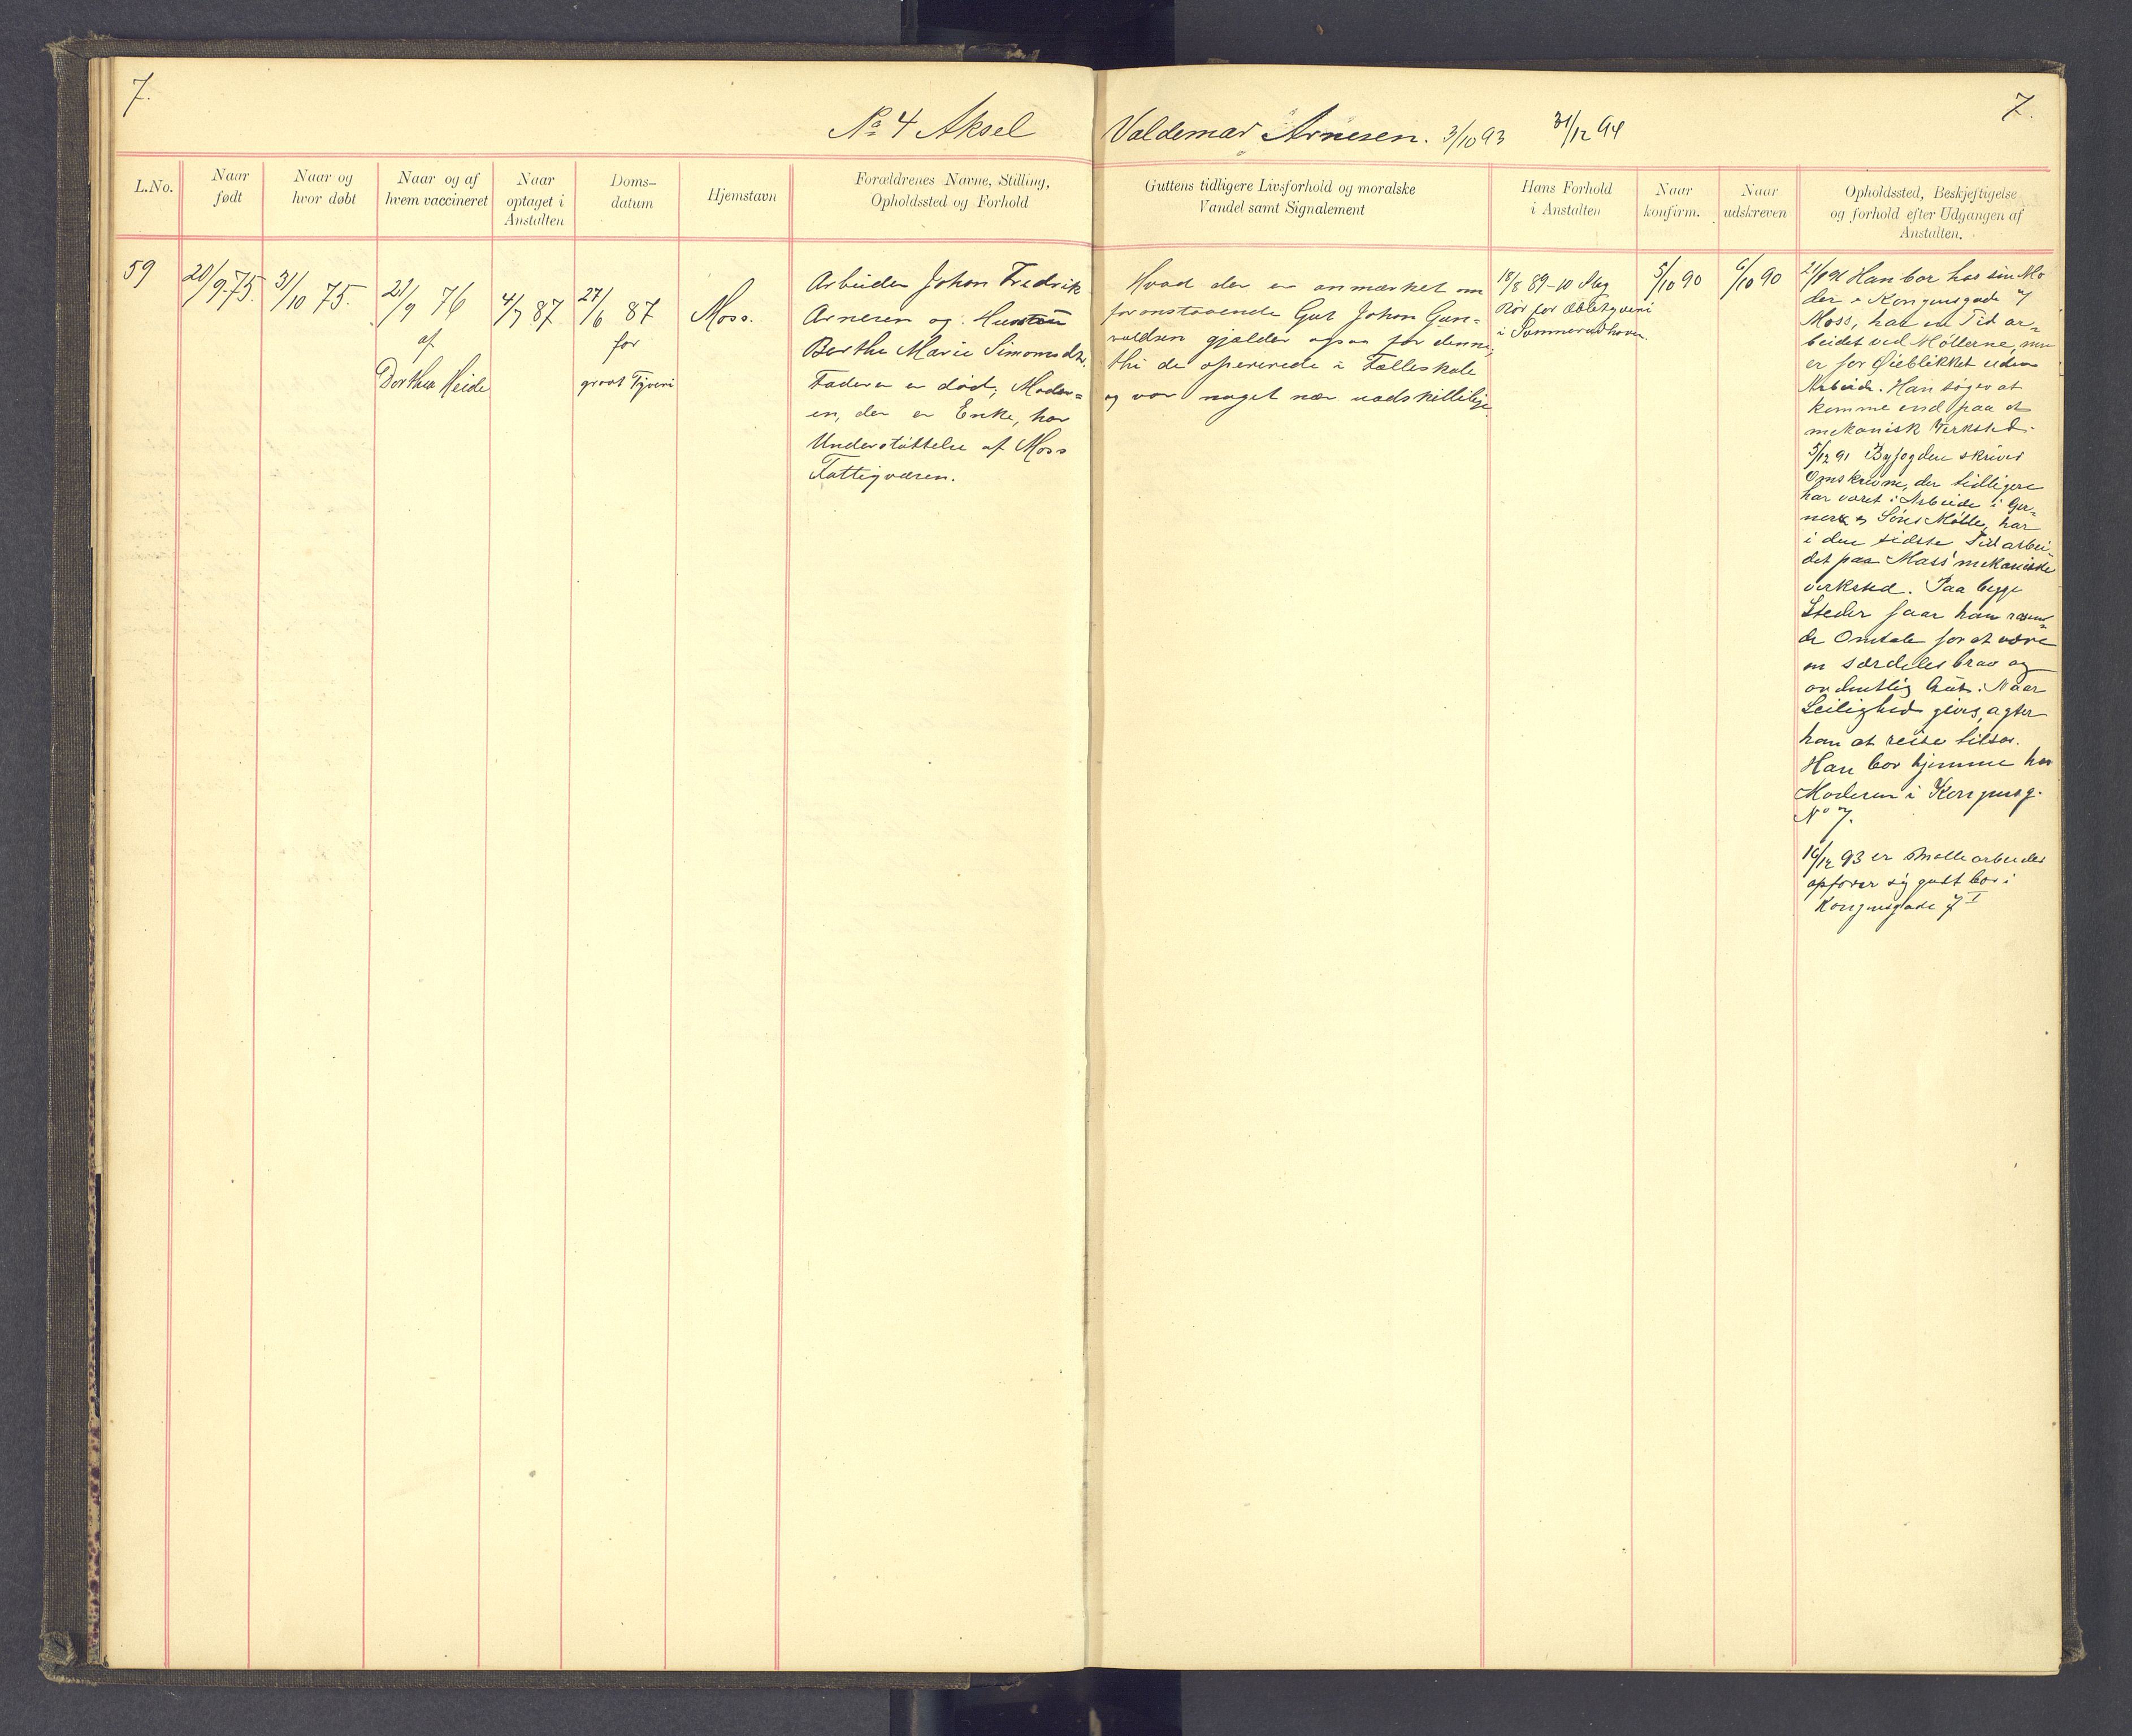 7.
7.
No 4 Aksel Valdemar Arnesen. 3/10 93 31/12 94
L.No.
Naar
født
Naar og
hvor døbt
Naar og af
hvem vaccineret
Naar
optaget i
Anstalten
Doms-
datum
Hjemstavn
Forældrenes Navne, Stilling,
Opholdssted og Forhold
Guttens tidligere Livsforhold og moralske
Vandel samt Signalement
Hans Forhold
i Anstalten
Naar
konfirm.
Naar
udskreven
Opholdssted, Beskjeftigelse
og forhold efter Udgangen af
Anstalten.
59
20/9 75.
31/10 75.
21/9 76
af
Dorthea Heide
4/7 87
27/6 87
for
grovt Tyveri
Moss.
Arbeider Johan Fredrik
Arnesen og Hustru
Berthe Marie Simonsdtr.
Faderen er død; Moder=
en, der er Enke, har
Understøttelse af Moss
Fattigvæsen.
Hvad der er anmærket om
foranstaaende Gut Johan Gun=
valdsen gjælder ogsaa for denne,
thi de opererede i Fælleskab
og var noget nær uadskillelige.
18/8 89 - 10 Slag
Rør for Æbletyveri
i Sommerudhaven.
5/10 90
6/10 90
Han bor hos sin Mo
der i Kongensgade 7
Moss, har en Tid ar=
beidet ved Møllerne, men
er for Øieblikket uden
Arbeide. Han søger at
komme ind paa et
mekanisk Verksted.
5/12 91 Byfogden skriver
Omskrevne, der tidligere
har været i Arbeide i Ger=
ners & Søns Mølle, har
i den sidste Tid arbei=
det paa Moss' mekaniske
verksted. Paa begge
Steder faar han rosen=
de Omtale for at være
en særdeles brav og
ordentlig Gut. Naar
Leilighed gives, agter
han at reise tilsøs.
Han bor hjemme hos
Moderen i Kongensg.
No 7.
16/12 93 er Møllearbeider
opfører sig godt bor i
Kongensgade 7 I